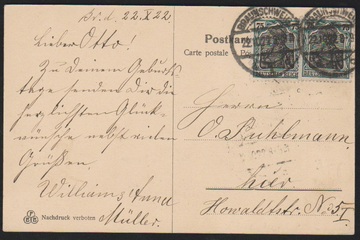 Br. d. 22.X.22.
Lieber Otto!
Zu Deinem Geburts-
tage senden Dir die
herzlichsten Glück-
wünsche nebst vielen
Grüßen.
William & Anna
Müller.
Nachdruck verboten
Postkarte
Carte postale
BRAUNSCHWEIG
Herrn
O. Puhlmann
hier
Howaldtstr. No 5 I